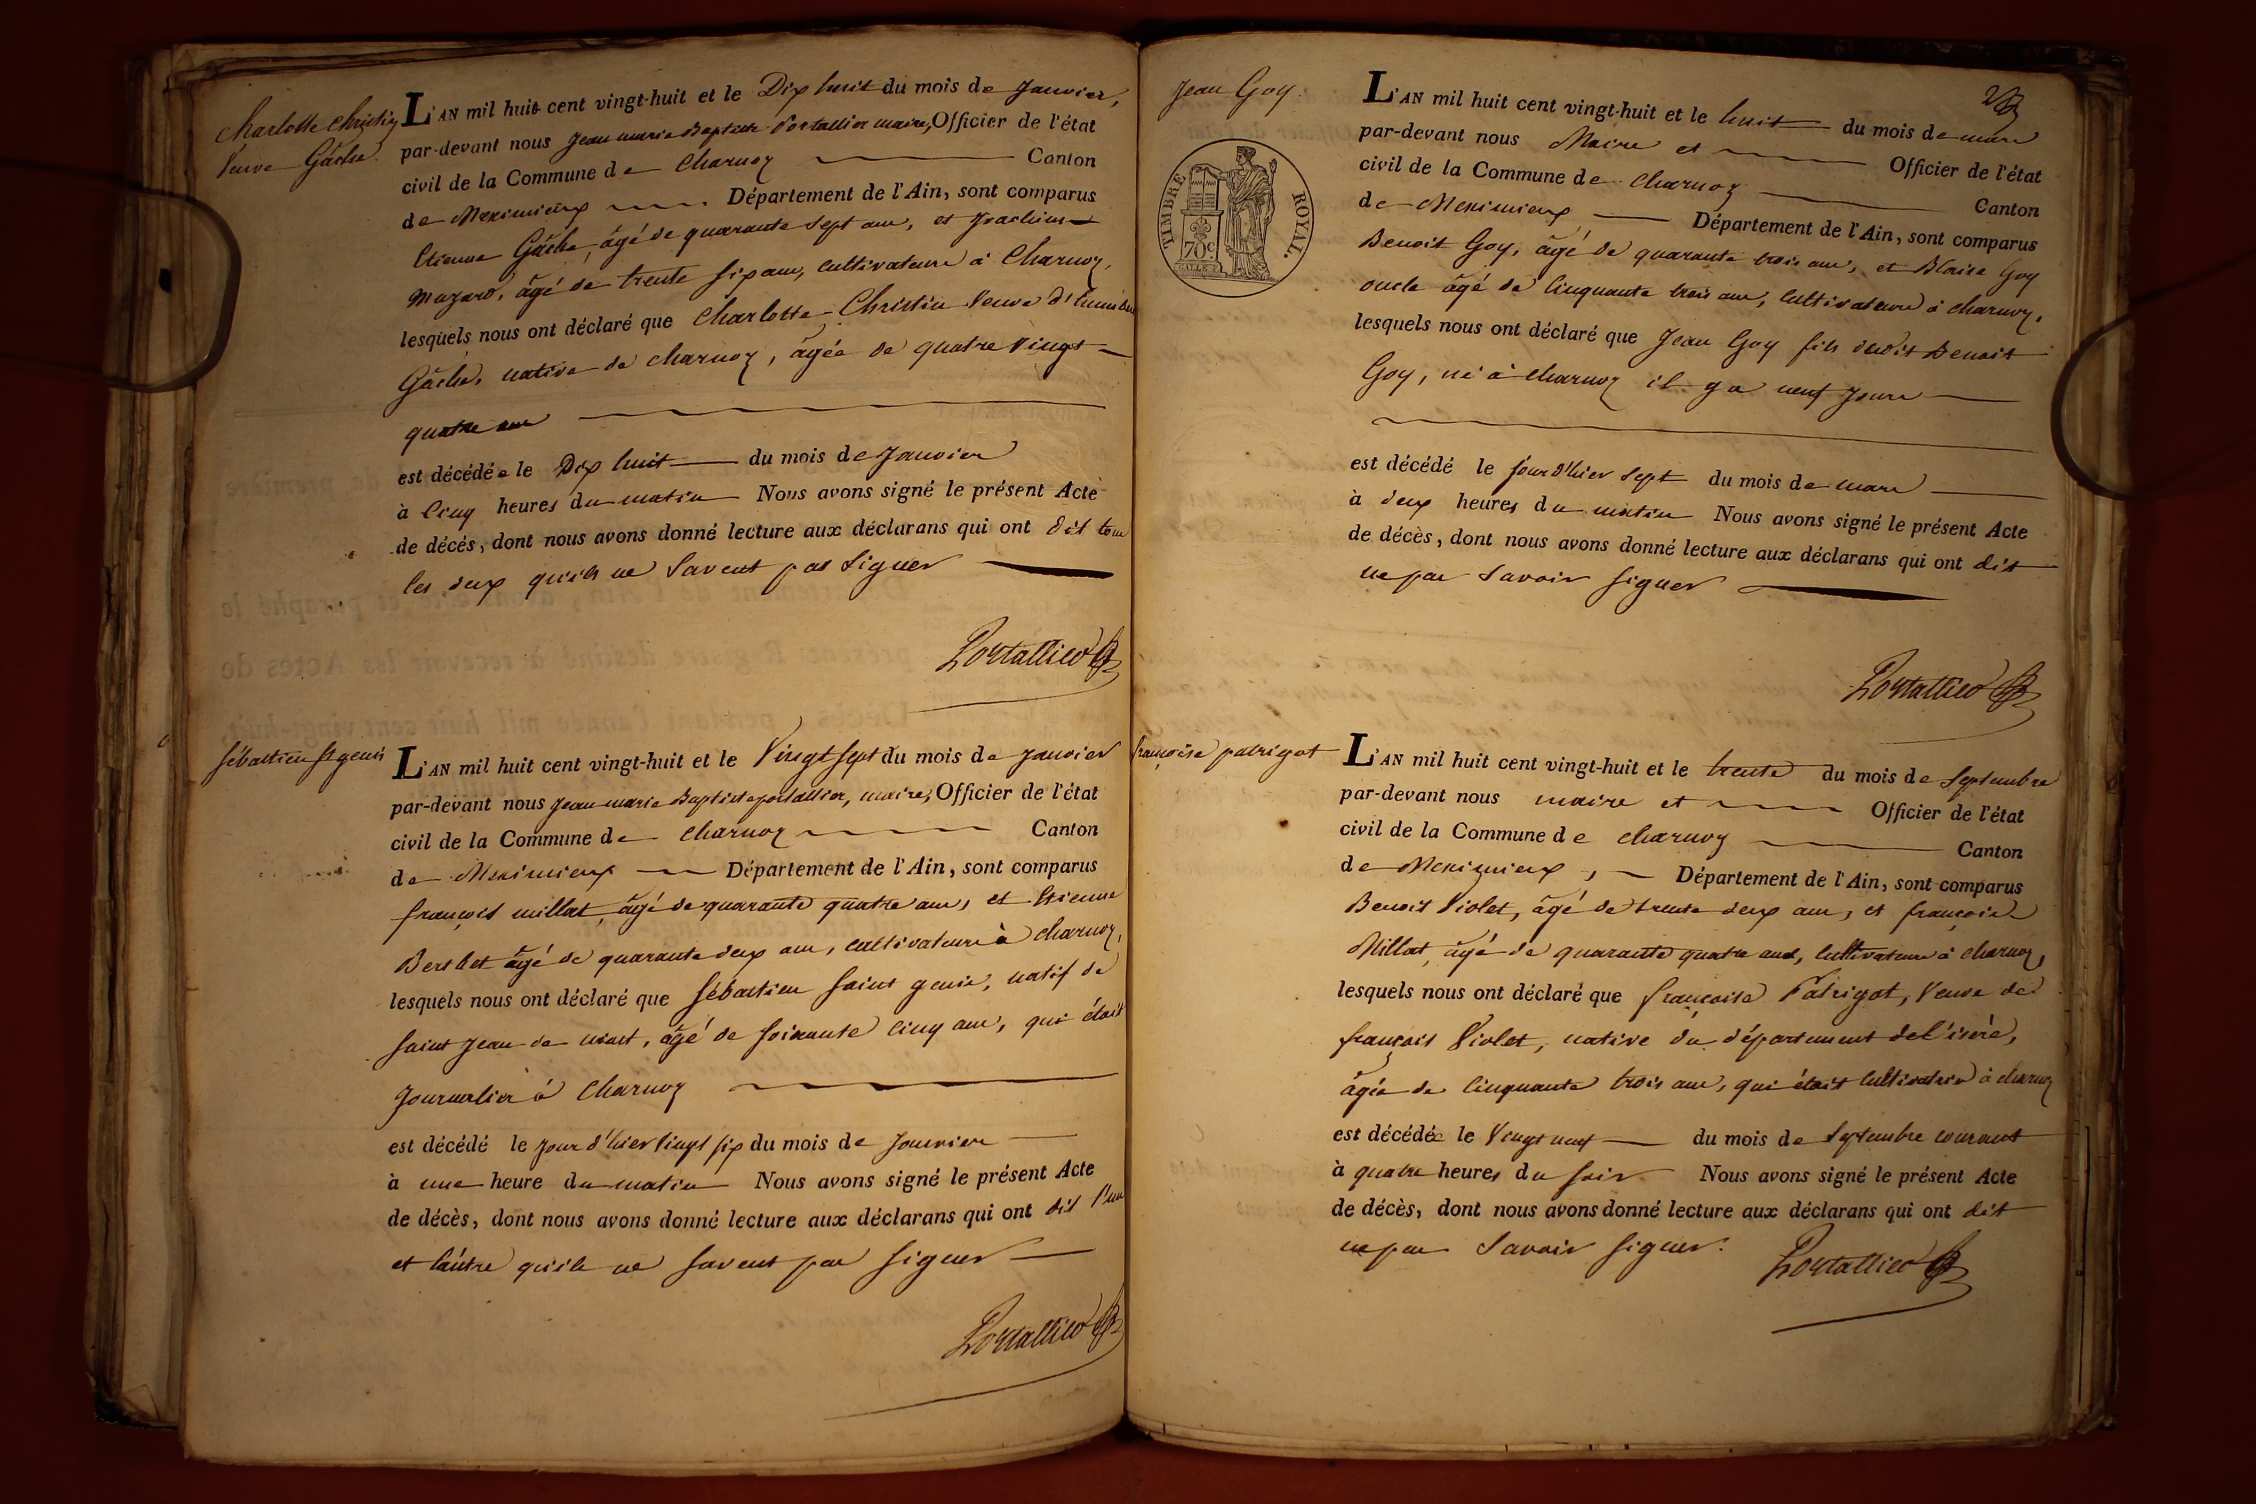 Charlotte Christin
Veuve Gâche.
L'AN mil huit cent vingt-huit et le Dix huit du mois de Janvier,
par-devant nous Jean marie Baptiste Portallier maire, Officier de l'état
civil de la Commune de Charnoz Canton
de Meximieux Département de l'Ain, sont comparus
Etienne Gâche, âgé de quarante sept ans, et
mazard, âgé de trente six ans, cultivateurs à Charnoz,
lesquels nous ont déclaré que Charlotte Christin Veuve
Gâche, native de charnoz, âgée de quatre Vingt
quatre ans
est décédée le Dix huit du mois de Janvier
à Cinq heures du matin Nous avons signé le présent Acte
de décés, dont nous avons donné lecture aux déclarans qui ont dit tous
les deux qu'ils ne Savent pas Signer
Portallier
Sébastien St genis
L'AN mil huit cent vingt-huit et le Vingt sept du mois de Janvier
par-devant nous Jean marie Baptiste portallier, maire, Officier de l'état
civil de la Commune de Charnoz Canton
de Meximieux Département de l'Ain, sont comparus
françois millat, âgé de quarante quatre ans, et Etienne
Berthet âgé de quarante deux ans, cultivateurs à charnoz,
lesquels nous ont déclaré que Sébastien Saint genis, natif de
Saint Jean de niost, âgé de Soixante cinq ans, qui était
Journalier à Charnoz
est décédé le jour d'hier Vingt six du mois de Janvier
à une heure du matin Nous avons signé le présent Acte
de décès, dont nous avons donné lecture aux déclarans qui ont dit l'un
et l'autre qu'ils ne Savent pas Signer
Portallier
2
Jean Goy.
TIMBRE ROYAL.
70 c
L'AN mil huit cent vingt-huit et le huit du mois de mars
par-devant nous Maire et Officier de l'état
civil de la Commune de Charnoz Canton
de Meximieux Département de l'Ain, sont comparus
Benoit Goy, âgé de quarante trois ans, et Blaise Goy
oncle âgé de Cinquante trois ans, Cultivateurs à charnoz,
lesquels nous ont déclaré que Jean Goy fils dudit Benoit
Goy, né à Charnoz il y a neuf Jours
est décédé le jour d'hier sept du mois de mars
à deux heures du matin Nous avons signé le présent Acte
de décès, dont nous avons donné lecture aux déclarans qui ont dit
ne pas Savoir Signer
Portallier
françoise patrigot
L'AN mil huit cent vingt-huit et le trente du mois de Septembre
par-devant nous maire et Officier de l'état
civil de la Commune de charnoz Canton
de Meximieux, Département de l'Ain, sont comparus
Benoit Violet, âgé de trente deux ans, et françois
Millat, âgé de quarante quatre ans, Cultivateurs à charnoz,
lesquels nous ont déclaré que françoise Patrigot, Veuve de
françois Violet, native du département de l'isère,
âgée de Cinquante trois ans, qui était Cultivatrice à charnoz
est décédée le Vingt neuf du mois de Septembre courant
à quatre heures du Soir Nous avons signé le présent Acte
de décès, dont nous avons donné lecture aux déclarans qui ont dit
ne pas Savoir Signer.
Portallier